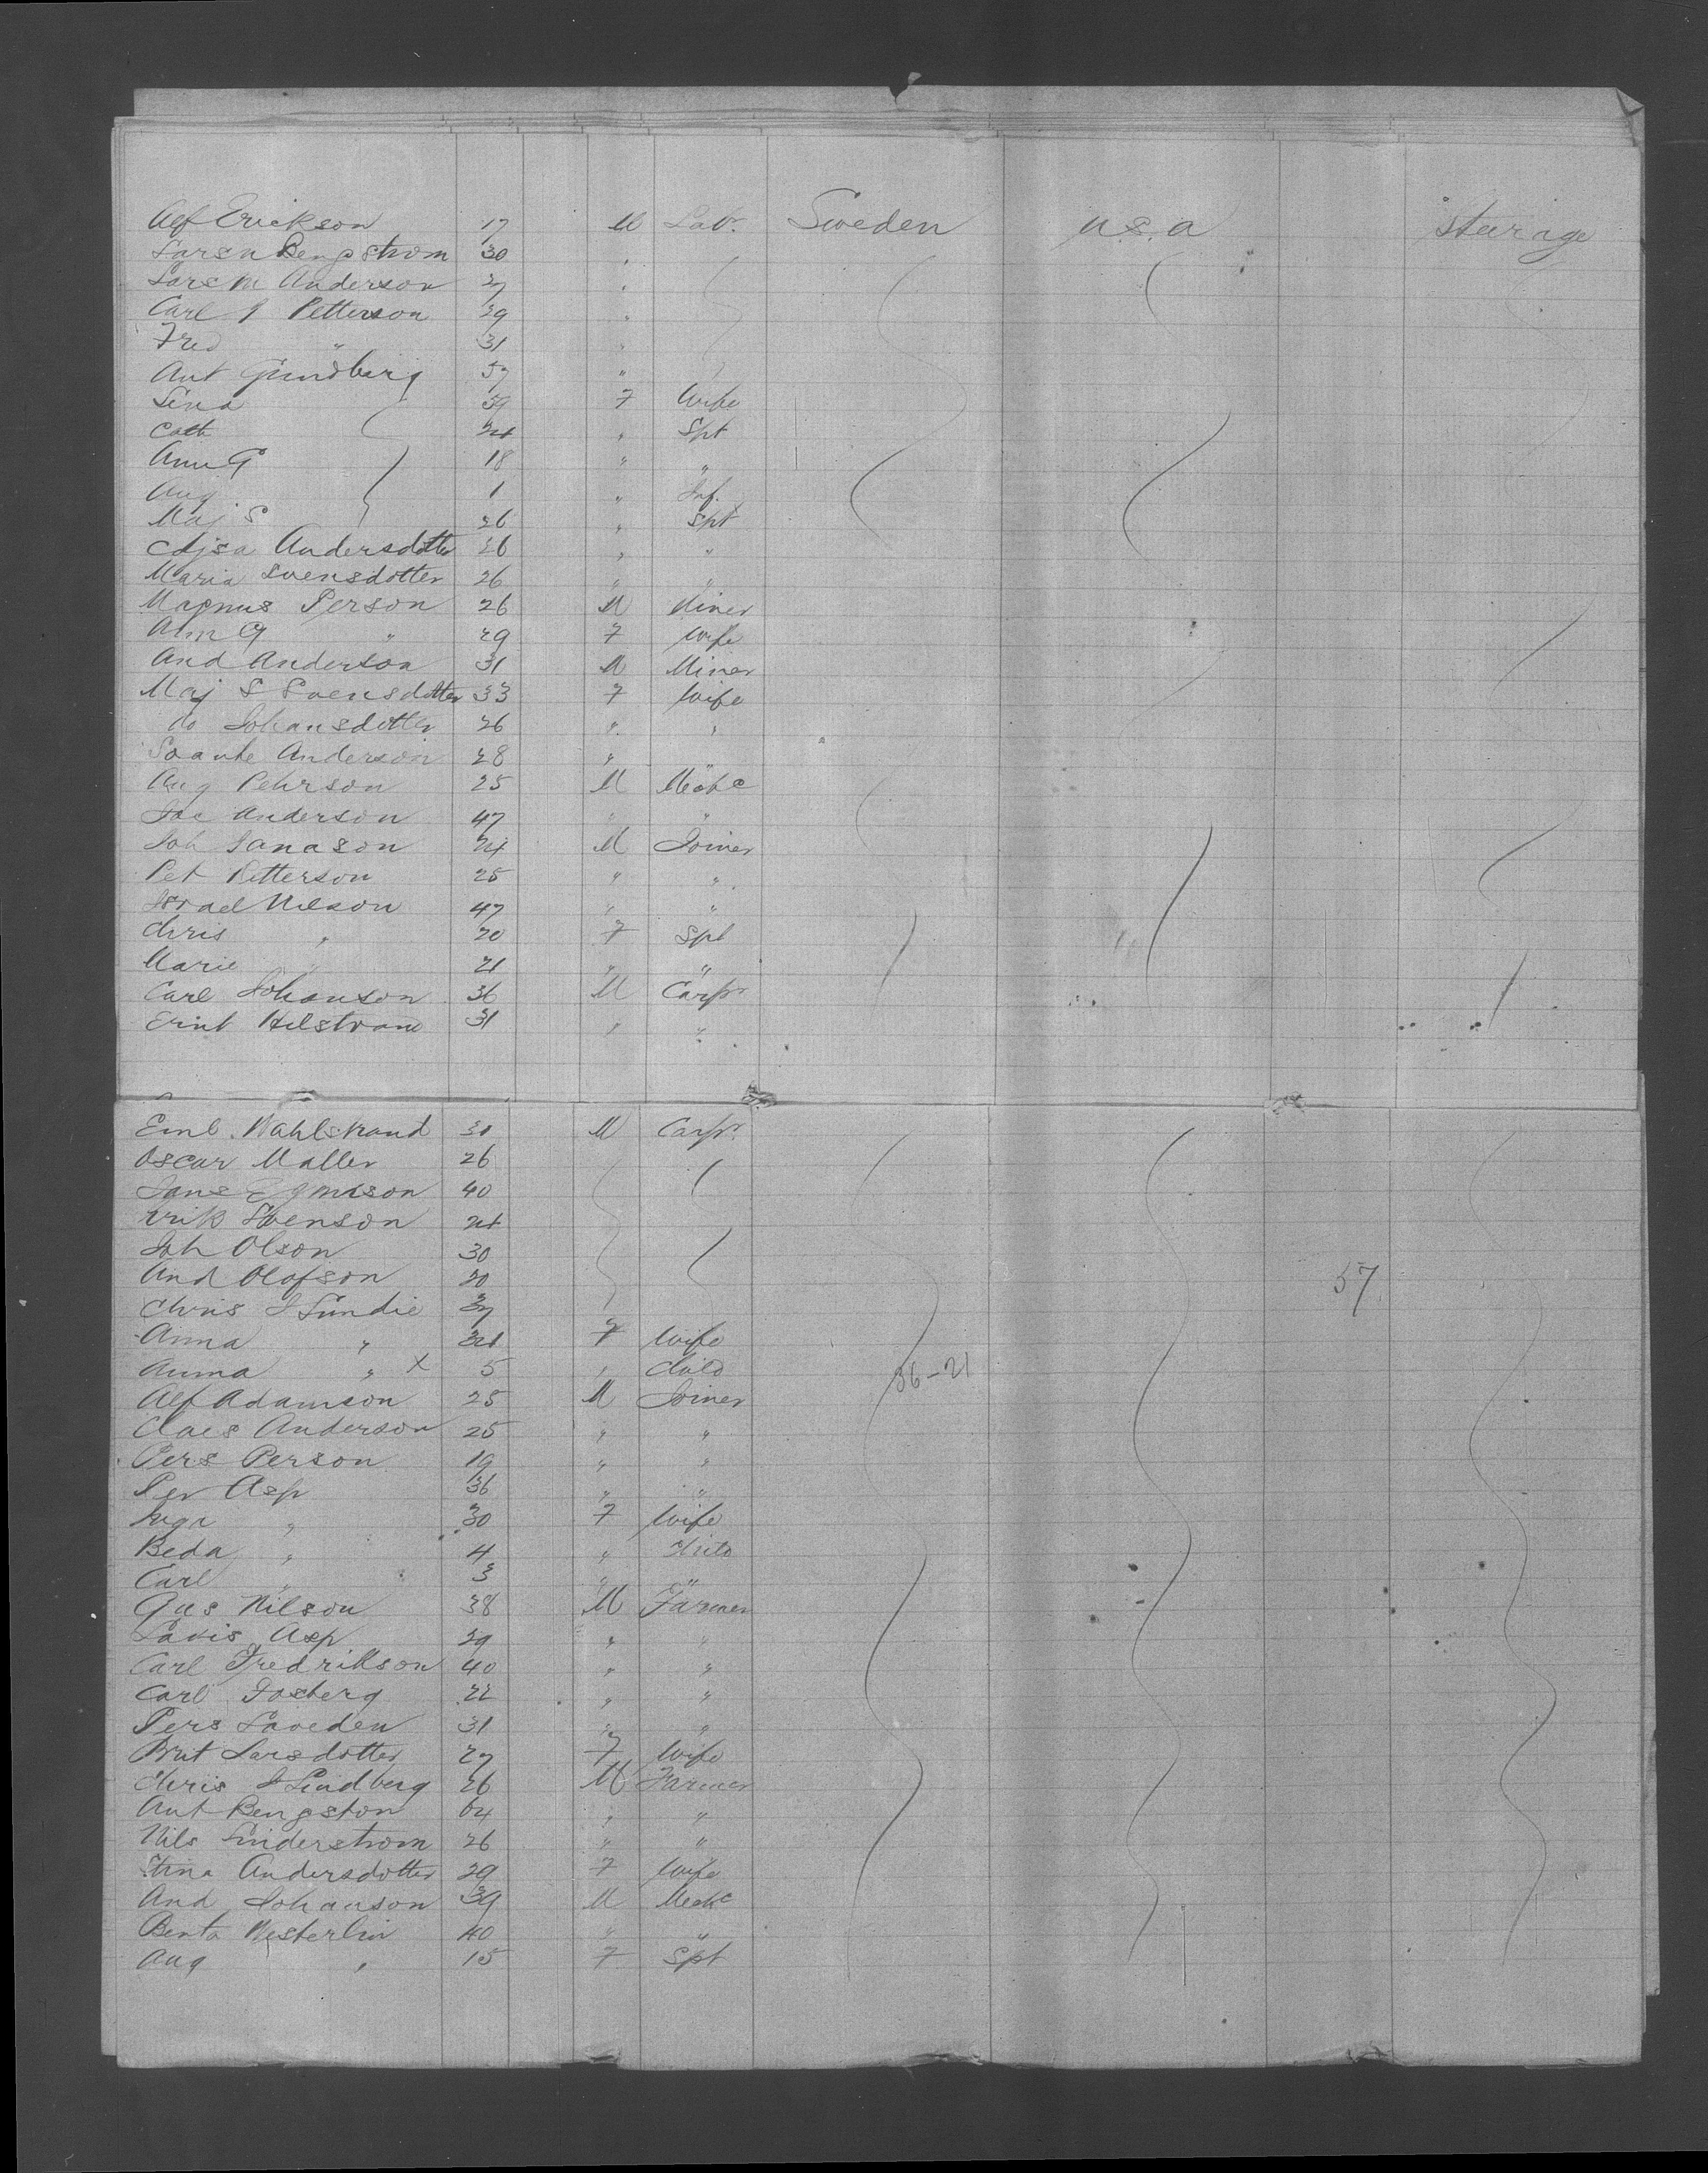 Alf Erickson 17 M Labr. Sweden U.S.A Steerage
Lars n Bengstrom 30 "
Lars M Anderson 27 "
Carl J Petterson 29 "
Fred " 31 "
Ant Grundberg 57 "
Lina 59 F Wife
Cath 24 " Spt
Ann G 18 " "
Aug 1 " Inf.
Maj S 26 " Spt
Cajsa Andersdotter 26 " "
Maria Svensdotter 26 " "
Magnus Person 26 M Miner
Ann G " 29 F Wife
And Anderson 31 M Miner
Maj S Svensdotter 33 F Wife
do Johansdotter 26 " "
Svante Anderson 28 "
Aug Pehrson 25 M Mechc
Joe Anderson 47 " "
Joh Janason 24 M Joiner
Pet Petterson 25 " "
Israel Nilson 47 " "
Chris " 20 F Spt
Marie " 21 " "
Carl Johanson 36 M Carpr
Ernt Helstrand 31 " "
Eml. Wahlstrand 31 M Carpr.
Oscar Maller 26
Jans 40
Erik Svenson 24
Joh Olson 30
And Olofson 30
Chris J Lundie 37 57
Anna " 31 F Wife
Anna " X 5 " Child 36-21
Alf Adamson 25 M Joiner
Claes Anderson 25 " "
Pers Person 19 " "
Per Asp 36 " "
Inga " 30 F Wife
Beda " 4 " Child
Carl " 3 " "
Gus Nilson 38 M Farmer
Lovis Asp 29 " "
Carl Fredrikson 40 " "
Carl Fosberg 22 " "
Pers Laveden 31 " "
Brit Larsdotter 27 F Wife
Chris J Lindberg 26 M Farmer
Ant Bengston 64 " "
Nils Linderstrom 26 " "
Stina Andersdotter 29 F Wife
And Johanson 39 M Mechc
Benta Westerlin 40 " "
Aug " 15 F Spt